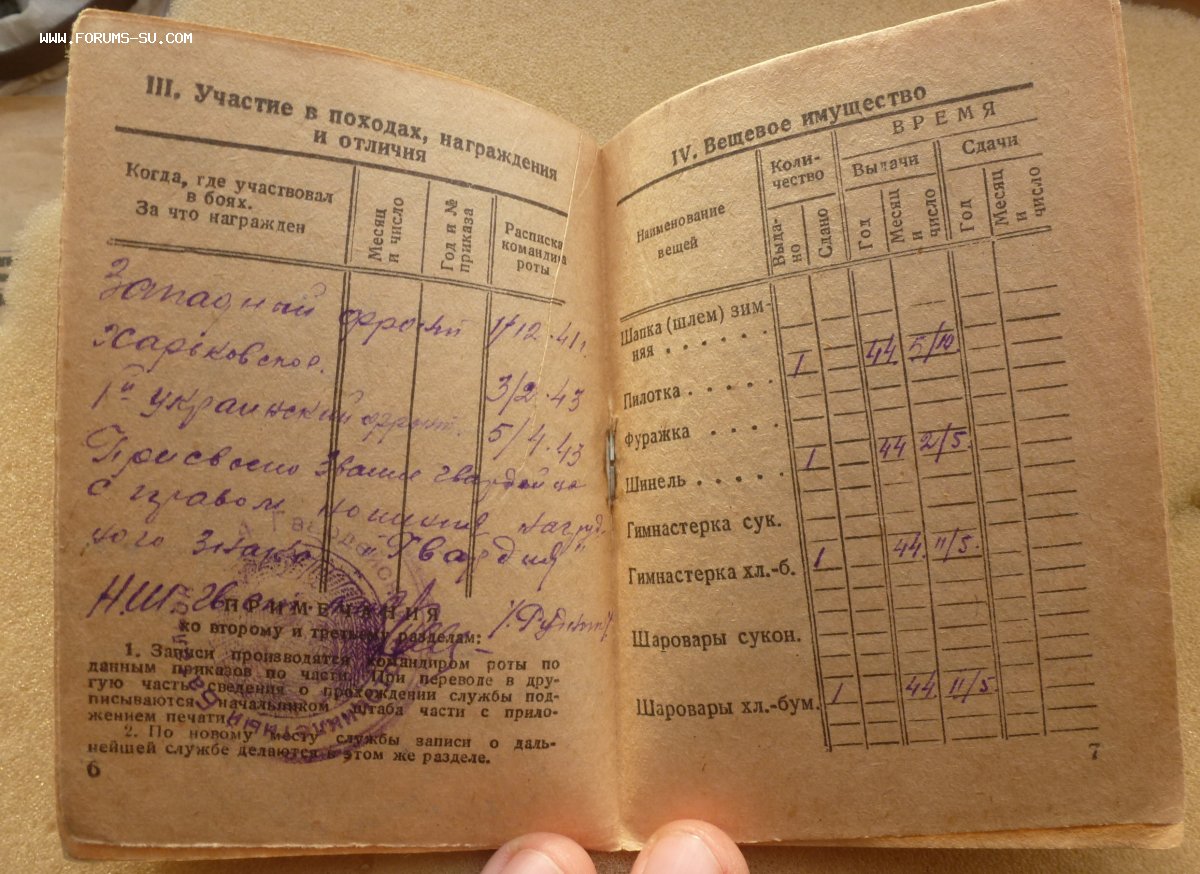 www.FORUMS-SU.com
III. Участие в походах, награждения
и отличия
Когда, где участвовал
в боях.
За что награжден
Месяц
и число
Год и №
приказа
Расписка
командира
роты
Западный фронт 1/12.41г.
Харьковское. 3/2.43
1й украинский фронт. 5/4.43
Присвоено звание гвардейца
с правом ношения нагруд-
ного знака "Гвардия"
НШ
ПРИМЕЧАНИЯ
ко второму и третьему разделам:
1. Записи производятся командиром роты по
данным приказов по части. При переводе в дру-
гую часть сведения о прохождении службы под-
писываются начальником штаба части с прило-
жением печати.
2. По новому месту службы записи о даль-
нейшей службе делаются в этом же разделе.
6
IV. Вещевое имущество
Наименование
вещей
Коли-
чество
ВРЕМЯ
Выдачи
Сдачи
Выда-
но
Сдано
Год
Месяц
и
число
Год
Месяц
и
число
Шапка (шлем) зим-
няя . . . . . . 1 44 5/10
Пилотка . . . . .
Фуражка . . . . 1 44 2/5.
Шинель . . . . .
Гимнастерка сук.
Гимнастерка хл.-б. 1 44 11/5.
Шаровары сукон.
Шаровары хл.-бум. 1 44 11/5
7